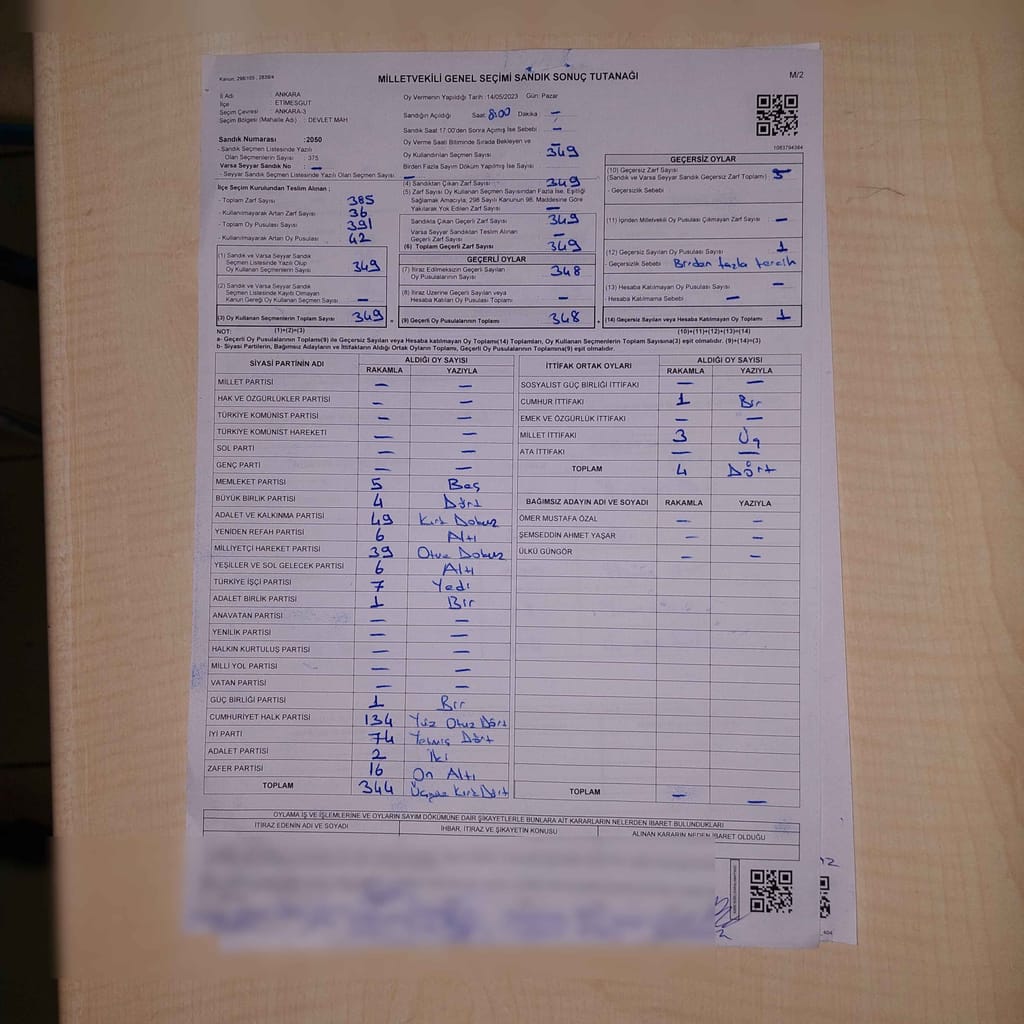 Kanun: 298/105 - 2839/4
MİLLETVEKİLİ GENEL SEÇİMİ SANDIK SONUÇ TUTANAĞI
M/2
İl Adı : ANKARA
İlçe : ETİMESGUT
Seçim Çevresi : ANKARA-3
Seçim Bölgesi (Mahalle Adı) : DEVLET MAH
Sandık Numarası :2050
- Sandık Seçmen Listesinde Yazılı
Olan Seçmenlerin Sayısı : 375
Varsa Seyyar Sandık No —
- Seyyar Sandık Seçmen Listesinde Yazılı Olan Seçmen Sayısı: —
İlçe Seçim Kurulundan Teslim Alınan ;
- Toplam Zarf Sayısı 385
- Kullanılmayarak Artan Zarf Sayısı 36
- Toplam Oy Pusulası Sayısı 391
- Kullanılmayarak Artan Oy Pusulası 42
(1) Sandık ve Varsa Seyyar Sandık
Seçmen Listesinde Yazılı Olup
Oy Kullanan Seçmenlerin Sayısı 349
(2) Sandık ve Varsa Seyyar Sandık
Seçmen Listesinde Kaydı Olmayan
Kanun Gereği Oy Kullanan Seçmen Sayısı —
(3) Oy Kullanan Seçmenlerin Toplam Sayısı 349
Oy Vermenin Yapıldığı Tarih :14/05/2023 Gün: Pazar
Sandığın Açıldığı Saat: 8:00 Dakika —
Sandık Saat 17:00'den Sonra Açılmış İse Sebebi —
Oy Verme Saati Bitiminde Sırada Bekleyen ve —
Oy Kullandırılan Seçmen Sayısı 349
Birden Fazla Sayım Döküm Yapılmış İse Sayısı
(4) Sandıktan Çıkan Zarf Sayısı 349
(5) Zarf Sayısı Oy Kullanan Seçmen Sayısından Fazla İse, Eşitliği
Sağlamak Amacıyla, 298 Sayılı Kanunun 98. Maddesine Göre
Yakılarak Yok Edilen Zarf Sayısı —
Sandıkta Çıkan Geçerli Zarf Sayısı 349
Varsa Seyyar Sandıktan Teslim Alınan
Geçerli Zarf Sayısı —
(6) Toplam Geçerli Zarf Sayısı 349
GEÇERLİ OYLAR
(7) İtiraz Edilmeksizin Geçerli Sayılan
Oy Pusulalarının Sayısı 348
(8) İtiraz Üzerine Geçerli Sayılan veya
Hesaba Katılan Oy Pusulası Toplamı —
(9) Geçerli Oy Pusulalarının Toplamı 348
1083794384
GEÇERSİZ OYLAR
(10) Geçersiz Zarf Sayısı
(Sandık ve Varsa Seyyar Sandık Geçersiz Zarf Toplamı)
- Geçersizlik Sebebi
(11) İçinden Milletvekili Oy Pusulası Çıkmayan Zarf Sayısı —
(12) Geçersiz Sayılan Oy Pusulası Sayısı 1
- Geçersizlik Sebebi Birden fazla tercih
(13) Hesaba Katılmayan Oy Pusulası Sayısı —
- Hesaba Katılmama Sebebi —
(14) Geçersiz Sayılan veya Hesaba Katılmayan Oy Toplamı 1
NOT: (1)+(2)=(3) (10)+(11)+(12)+(13)=(14)
a- Geçerli Oy Pusulaları Toplamı(9) ile Geçersiz sayılan veya Hesaba katılmayan Oy Toplamı(14) Toplamları, Oy Kullanan Seçmenlerin Toplam Sayısına(3) eşit olmalıdır. (9)+(14)=(3)
b- Siyasi Partilerin, Bağımsız Adayların ve İttifakların Aldığı Ortak Oyların Toplamı, Geçerli Oy Pusulalarının Toplamına(9) eşit olmalıdır.
SİYASİ PARTİNİN ADI ALDIĞI OY SAYISI
RAKAMLA YAZIYLA
MİLLET PARTİSİ — —
HAK VE ÖZGÜRLÜKLER PARTİSİ — —
TÜRKİYE KOMÜNİST PARTİSİ — —
TÜRKİYE KOMÜNİST HAREKETİ — —
SOL PARTİ — —
GENÇ PARTİ — —
MEMLEKET PARTİSİ 5 Beş
BÜYÜK BİRLİK PARTİSİ 4 Dört
ADALET VE KALKINMA PARTİSİ 49 Kırk Dokuz
YENİDEN REFAH PARTİSİ 6 Altı
MİLLİYETÇİ HAREKET PARTİSİ 39 Otuz Dokuz
YEŞİLLER VE SOL GELECEK PARTİSİ 6 Altı
TÜRKİYE İŞÇİ PARTİSİ 7 Yedi
ADALET BİRLİK PARTİSİ 1 Bir
ANAVATAN PARTİSİ — —
YENİLİK PARTİSİ — —
HALKIN KURTULUŞ PARTİSİ — —
MİLLİ YOL PARTİSİ — —
VATAN PARTİSİ — —
GÜÇ BİRLİĞİ PARTİSİ 1 Bir
CUMHURİYET HALK PARTİSİ 134 Yüz Otuz Dört
İYİ PARTİ 74 Yetmiş Dört
ADALET PARTİSİ 2 İki
ZAFER PARTİSİ 16 On Altı
TOPLAM 344 Üçyüz Kırk Dört
İTTİFAK ORTAK OYLARI ALDIĞI OY SAYISI
RAKAMLA YAZIYLA
SOSYALİST GÜÇ BİRLİĞİ İTTİFAKI — —
CUMHUR İTTİFAKI 1 Bir
EMEK VE ÖZGÜRLÜK İTTİFAKI — —
MİLLET İTTİFAKI 3 Üç
ATA İTTİFAKI — —
TOPLAM 4 Dört
BAĞIMSIZ ADAYIN ADI VE SOYADI RAKAMLA YAZIYLA
ÖMER MUSTAFA ÖZAL — —
ŞEMSEDDİN AHMET YAŞAR — —
ÜLKÜ GÜNGÖR — —
TOPLAM — —
OYLAMA İŞ VE İŞLEMLERİNE VE OYLARIN SAYIM DÖKÜMÜNE DAİR ŞİKAYETLERLE BUNLARA AİT KARARLARIN NELERDEN İBARET BULUNDUKLARI
İTİRAZ EDENİN ADI VE SOYADI İHBAR, İTİRAZ VE ŞİKAYETİN KONUSU ALINAN KARARIN NEDEN İBARET OLDUĞU